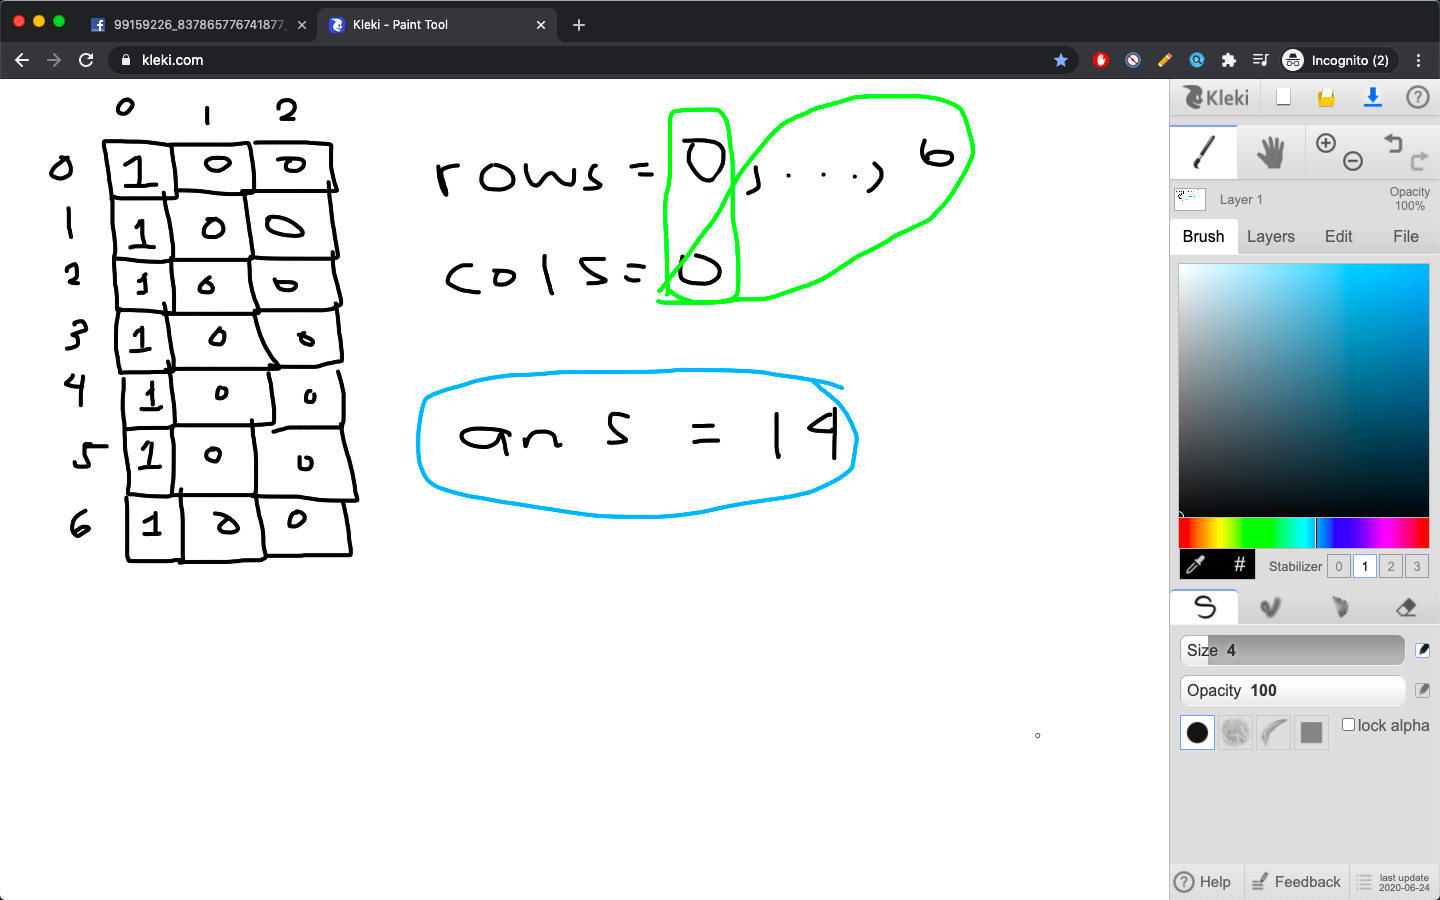 99159226_837865776741877_
Kleki - Paint Tool
kleki.com
Incognito (2)
0 1 2
0 1 0 0
1 1 0 0
2 1 0 0
3 1 0 0
4 1 0 0
5 1 0 0
6 1 0 0
rows = 0, ..., 6
cols = 0
ans = 14
Kleki
Layer 1
Opacity
100%
Brush Layers Edit File
# Stabilizer 0 1 2 3
Size 4
Opacity 100
lock alpha
Help Feedback last update
2020-06-24